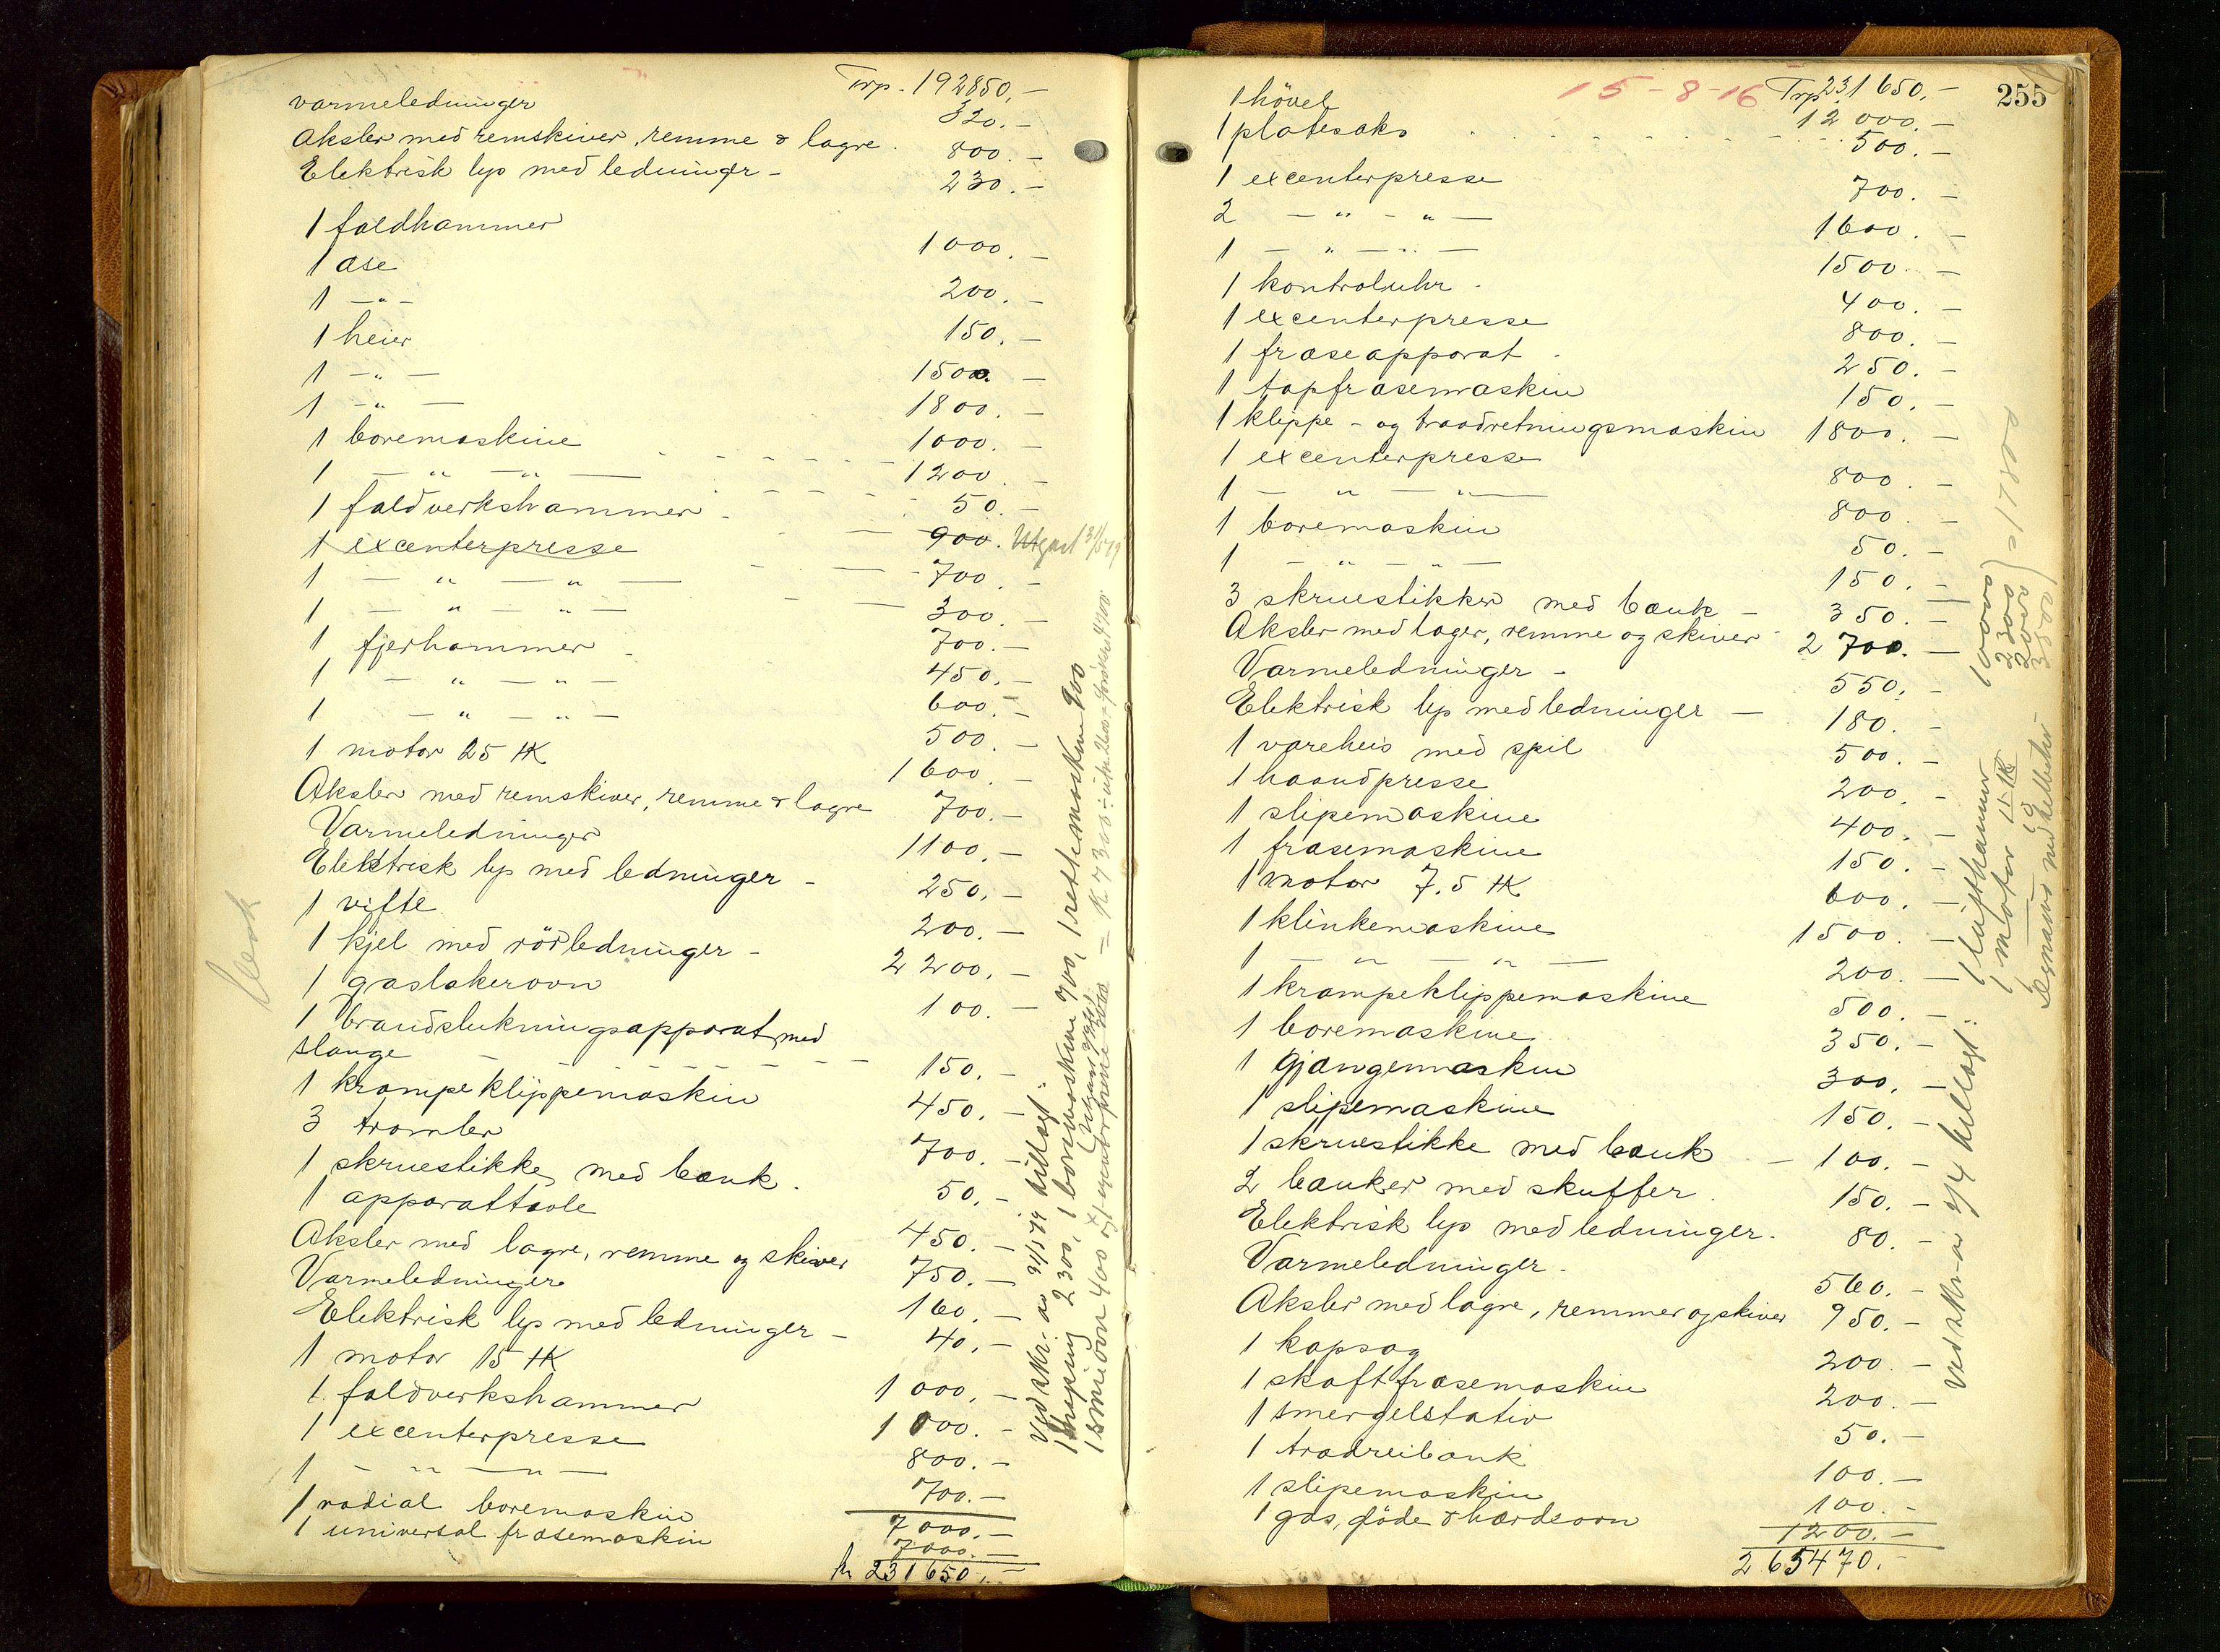 Trp. 192850.-
varmeledninger 320.-
Aksler med remskiver, remme & lagre 800.-
Elektrisk lys med ledninger - 230.-
1 faldhammer 1000.-
1 æse 200.-
1 -"- 150.-
1 heier 1500.-
1 -"- 1800.-
1 -"- 1000.-
1 boremaskine 1200.-
1 -"-"- 50.-
1 faldverkshammer 900. Utgaat 31/5 19
1 excenterpresse 700.-
1 -"-"- 300.-
1 -"-"- 700.-
1 fjerhammer 450.-
1 -"-"- 600.-
1 -"-"- 500.-
1 motor 25 HK 1600.-
Aksler med remskiver, remme & lagre 700.-
Varmeledninger 1100.-
Elektrisk lys med ledninger - 250.-
1 vifte 200.-
1 kjel med rörledninger - 2200.-
1 gaslakerovn 100.-
1 brandslukningsapparat med
slange 150.-
1 krampeklippemaskin 450.-
3 tromler 700.-
1 skruestikke med bænk. 50.-
1 apparattavle 450.-
Aksler med lagre, remme og skiver 750.-
Varmeledninger 160.-
Elektrisk lys med ledninger - 40.-
1 motor 15 HK 1000.-
1 faldverkshammer 1000.-
1 excenterpresse 800.-
1 -"-"- 700.-
1 radial boremaskin 7000.-
1 universal fræsemaskin 7000.-
kr 231650.-
Ved skr. av 31/5 19 tillagt:
2300, 1 boremaskine 700, 1 rettemaskin 900
255
15-8-16
Trp 231650.-
1 hövel 12000.-
1 platesaks 500.-
1 excenterpresse 700.-
2 -"-"- 1600.-
1 -"-"- 1500.-
1 kontroluhr 400.-
1 excenterpresse 800.-
1 fræseapparat 250.-
1 tapfræsemaskin 150.-
1 klippe- og traadretningsmaskin 1800.-
1 excenterpresse 800.-
1 -"-"- 800.-
1 boremaskin 50.-
1 -"-"- 150.-
3 skruestikker med bænk - 350.-
Aksler med lager, remme og skiver 2700.-
Varmeledninger - 550.-
Elektrisk lys med ledninger - 180.-
1 vareheis med spil 500.-
1 haandpresse 200.-
1 slipemaskine 400.-
1 fræsemaskine 150.-
1 motor 7.5 HK 600.-
1 klinkemaskine 1500.-
1 -"-"- 200.-
1 krampeklippemaskine 500.-
1 boremaskine 350.-
1 gjængemaskin 300.-
1 slipemaskine 150.-
1 skruestikke med bænk - 100.-
2 bænker med skuffer. 150.-
Elektrisk lys med ledninger. 80.-
Varmeledninger. 560.-
Aksler med lagre, remmer og skiver 950.-
1 kapsag 200.-
1 skaftfræsemaskin 200.-
1 smergelstativ 50.-
1 trædreibænk 100.-
1 slipemaskin 100.-
1 gas, gløde & hærdeovn 1200.-
265470.-
Ved skr. av 9/4 tillagt:
1 lufthammer 10000
1 motor 15 HK 2300
1 2000
3500 = 17800